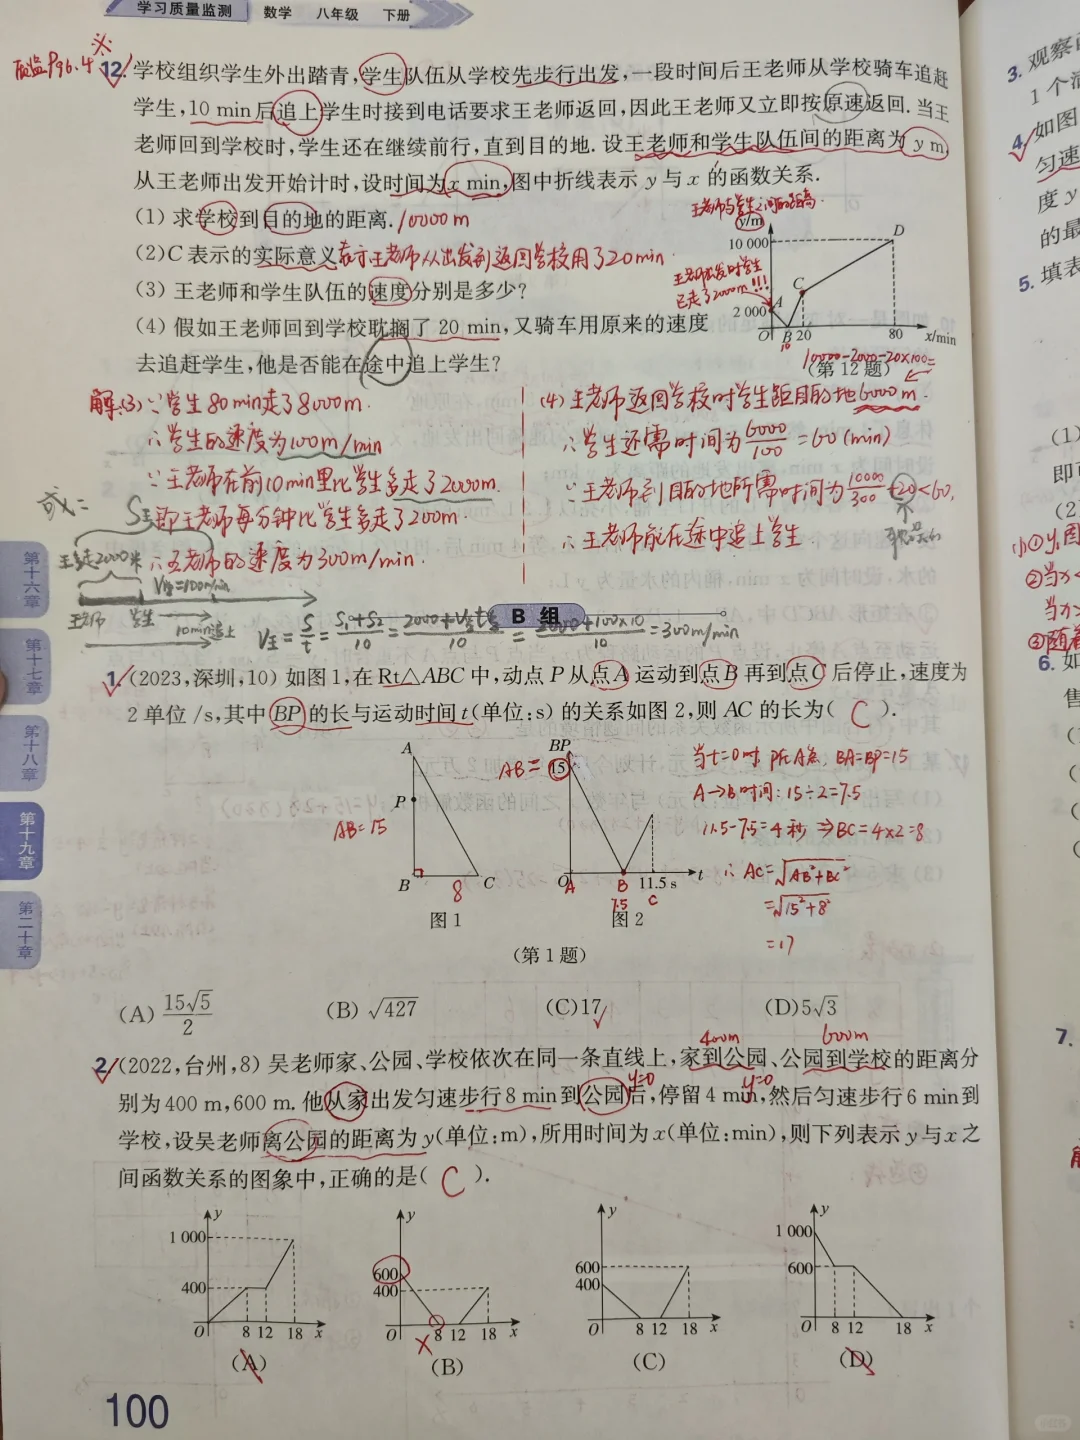 学习质量监测 数学 八年级 下册
质监P96.4 ※
12. 学校组织学生外出踏青,学生队伍从学校先步行出发,一段时间后王老师从学校骑车追赶
学生,10 min后追上学生时接到电话要求王老师返回,因此王老师又立即按原速返回.当王
老师回到学校时,学生还在继续前行,直到目的地.设王老师和学生队伍间的距离为 y m,
从王老师出发开始计时,设时间为x min,图中折线表示 y 与 x 的函数关系.
(1) 求学校到目的地的距离. 10000m
(2)C 表示的实际意义 表示王老师从出发到返回学校用了20min.
(3) 王老师和学生队伍的速度分别是多少?
(4) 假如王老师回到学校耽搁了 20 min,又骑车用原来的速度
去追赶学生,他是否能在途中追上学生?
王老师与学生之间的距离.
y/m
10 000
D
王老师出发时学生
已走了2000m!!!
C
2 000
A
O B 20 80 x/min
10
10000-2000-20×100=
(第 12 题)
解:(3)∵学生80min走了8000m.
∴学生的速度为100m/min
∵王老师在前10min里比学生多走了2000m.
即王老师每分钟比学生多走了200m.
∴王老师的速度为300m/min.
(4) 王老师返回学校时学生距目的地6000m.
∴学生还需时间为6000/100=60(min)
∵王老师到目的地所需时间为10000/300+20<60,
∴王老师能在途中追上学生
或=
S王
王多走2000米
V学=100m/min
王老师 学生 10min追上
V王=S/t=(S₁+S₂)/10=(2000+V学t学)/10=(2000+100×10)/10=300m/min
B 组
1. (2023,深圳,10) 如图 1,在 Rt△ABC 中,动点 P 从点 A 运动到点 B 再到点 C 后停止,速度为
2 单位 /s,其中 BP 的长与运动时间 t(单位:s) 的关系如图 2,则 AC 的长为( C ).
A
P
AB=15
B 8 C
图 1
BP
AB=15
O B 11.5 s t
A 7.5 C
图 2
当t=0时 P在A点, BA=BP=15
A→B时间:15÷2=7.5
11.5-7.5=4秒 ⇒BC=4×2=8
∴ AC=√(AB²+BC²)
=√(15²+8²)
=17
(第 1 题)
(A) 15√5/2 (B) √427 (C)17 (D)5√3
400m 600m
2. (2022,台州,8) 吴老师家、公园、学校依次在同一条直线上,家到公园、公园到学校的距离分
y=0 y=0
别为 400 m,600 m. 他从家出发匀速步行 8 min 到公园后,停留 4 min,然后匀速步行 6 min 到
学校,设吴老师离公园的距离为 y(单位:m),所用时间为 x(单位:min),则下列表示 y 与 x 之
间函数关系的图象中,正确的是( C ).
y
1 000
400
O 8 12 18 x
(A)
y
600
400
O 8 12 18 x
(B)
y
600
400
O 8 12 18 x
(C)
y
1 000
600
O 8 12 18 x
(D)
100
第十六章
第十七章
第十八章
第十九章
第二十章
3. 观察
1 个
4. 如图
匀速
度 y
的最
5. 填表
(1)
即可
(2)
6. 如
售
7.